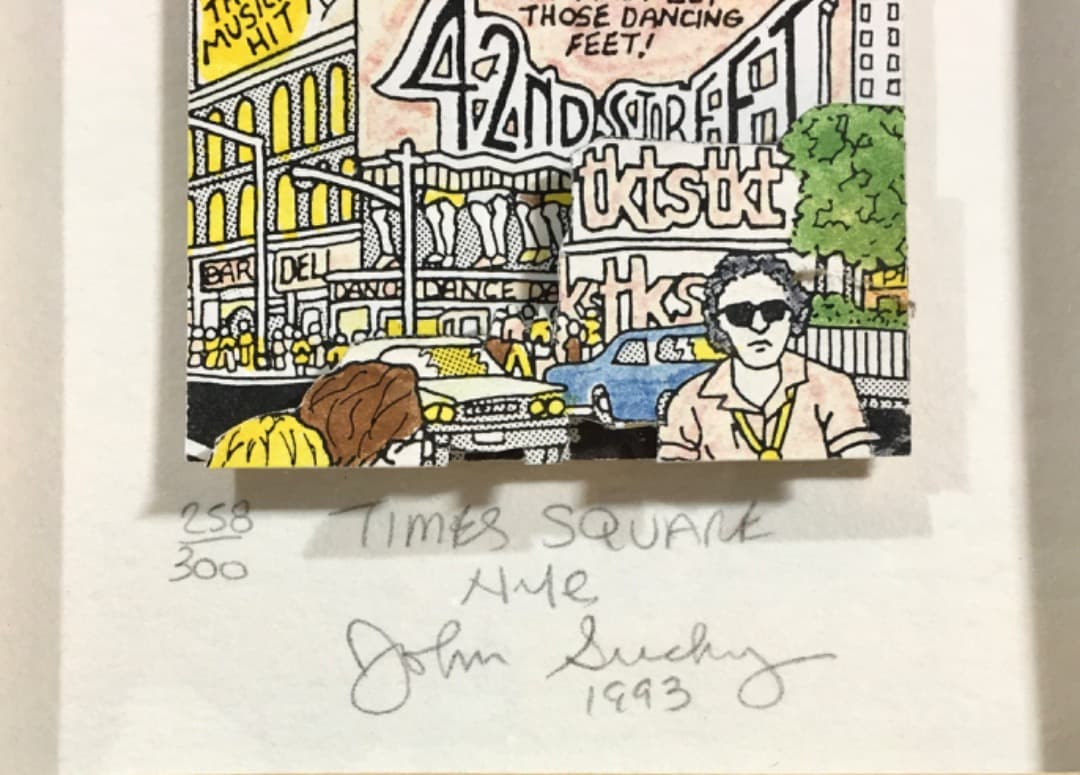 THE
MUSICAL
HIT
THOSE DANCING
FEET!
42ND STREET
tktstkt
BAR DELI
DANCE DANCE DA
tks
258
300
TIMES SQUARE
NYC
John Suchy
1993